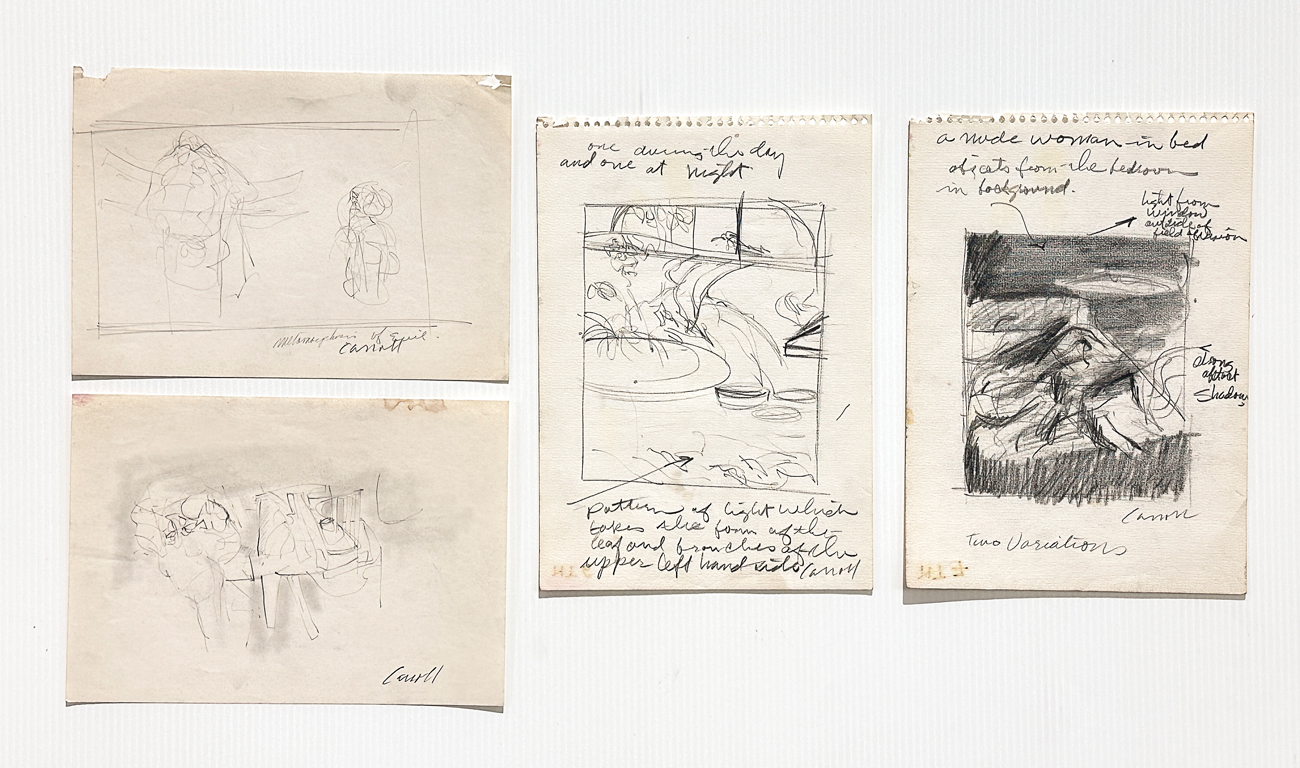 metamorphosis of
Carroll
Carroll
one during the day
and one at night.
pattern of light which
takes the form of the
leaf and branches of the
upper left hand side
Carroll
a nude woman in bed
objects from the bedroom
in background.
light from
window
outside of
field of vision
strong
shadows
Carroll
Two Variations